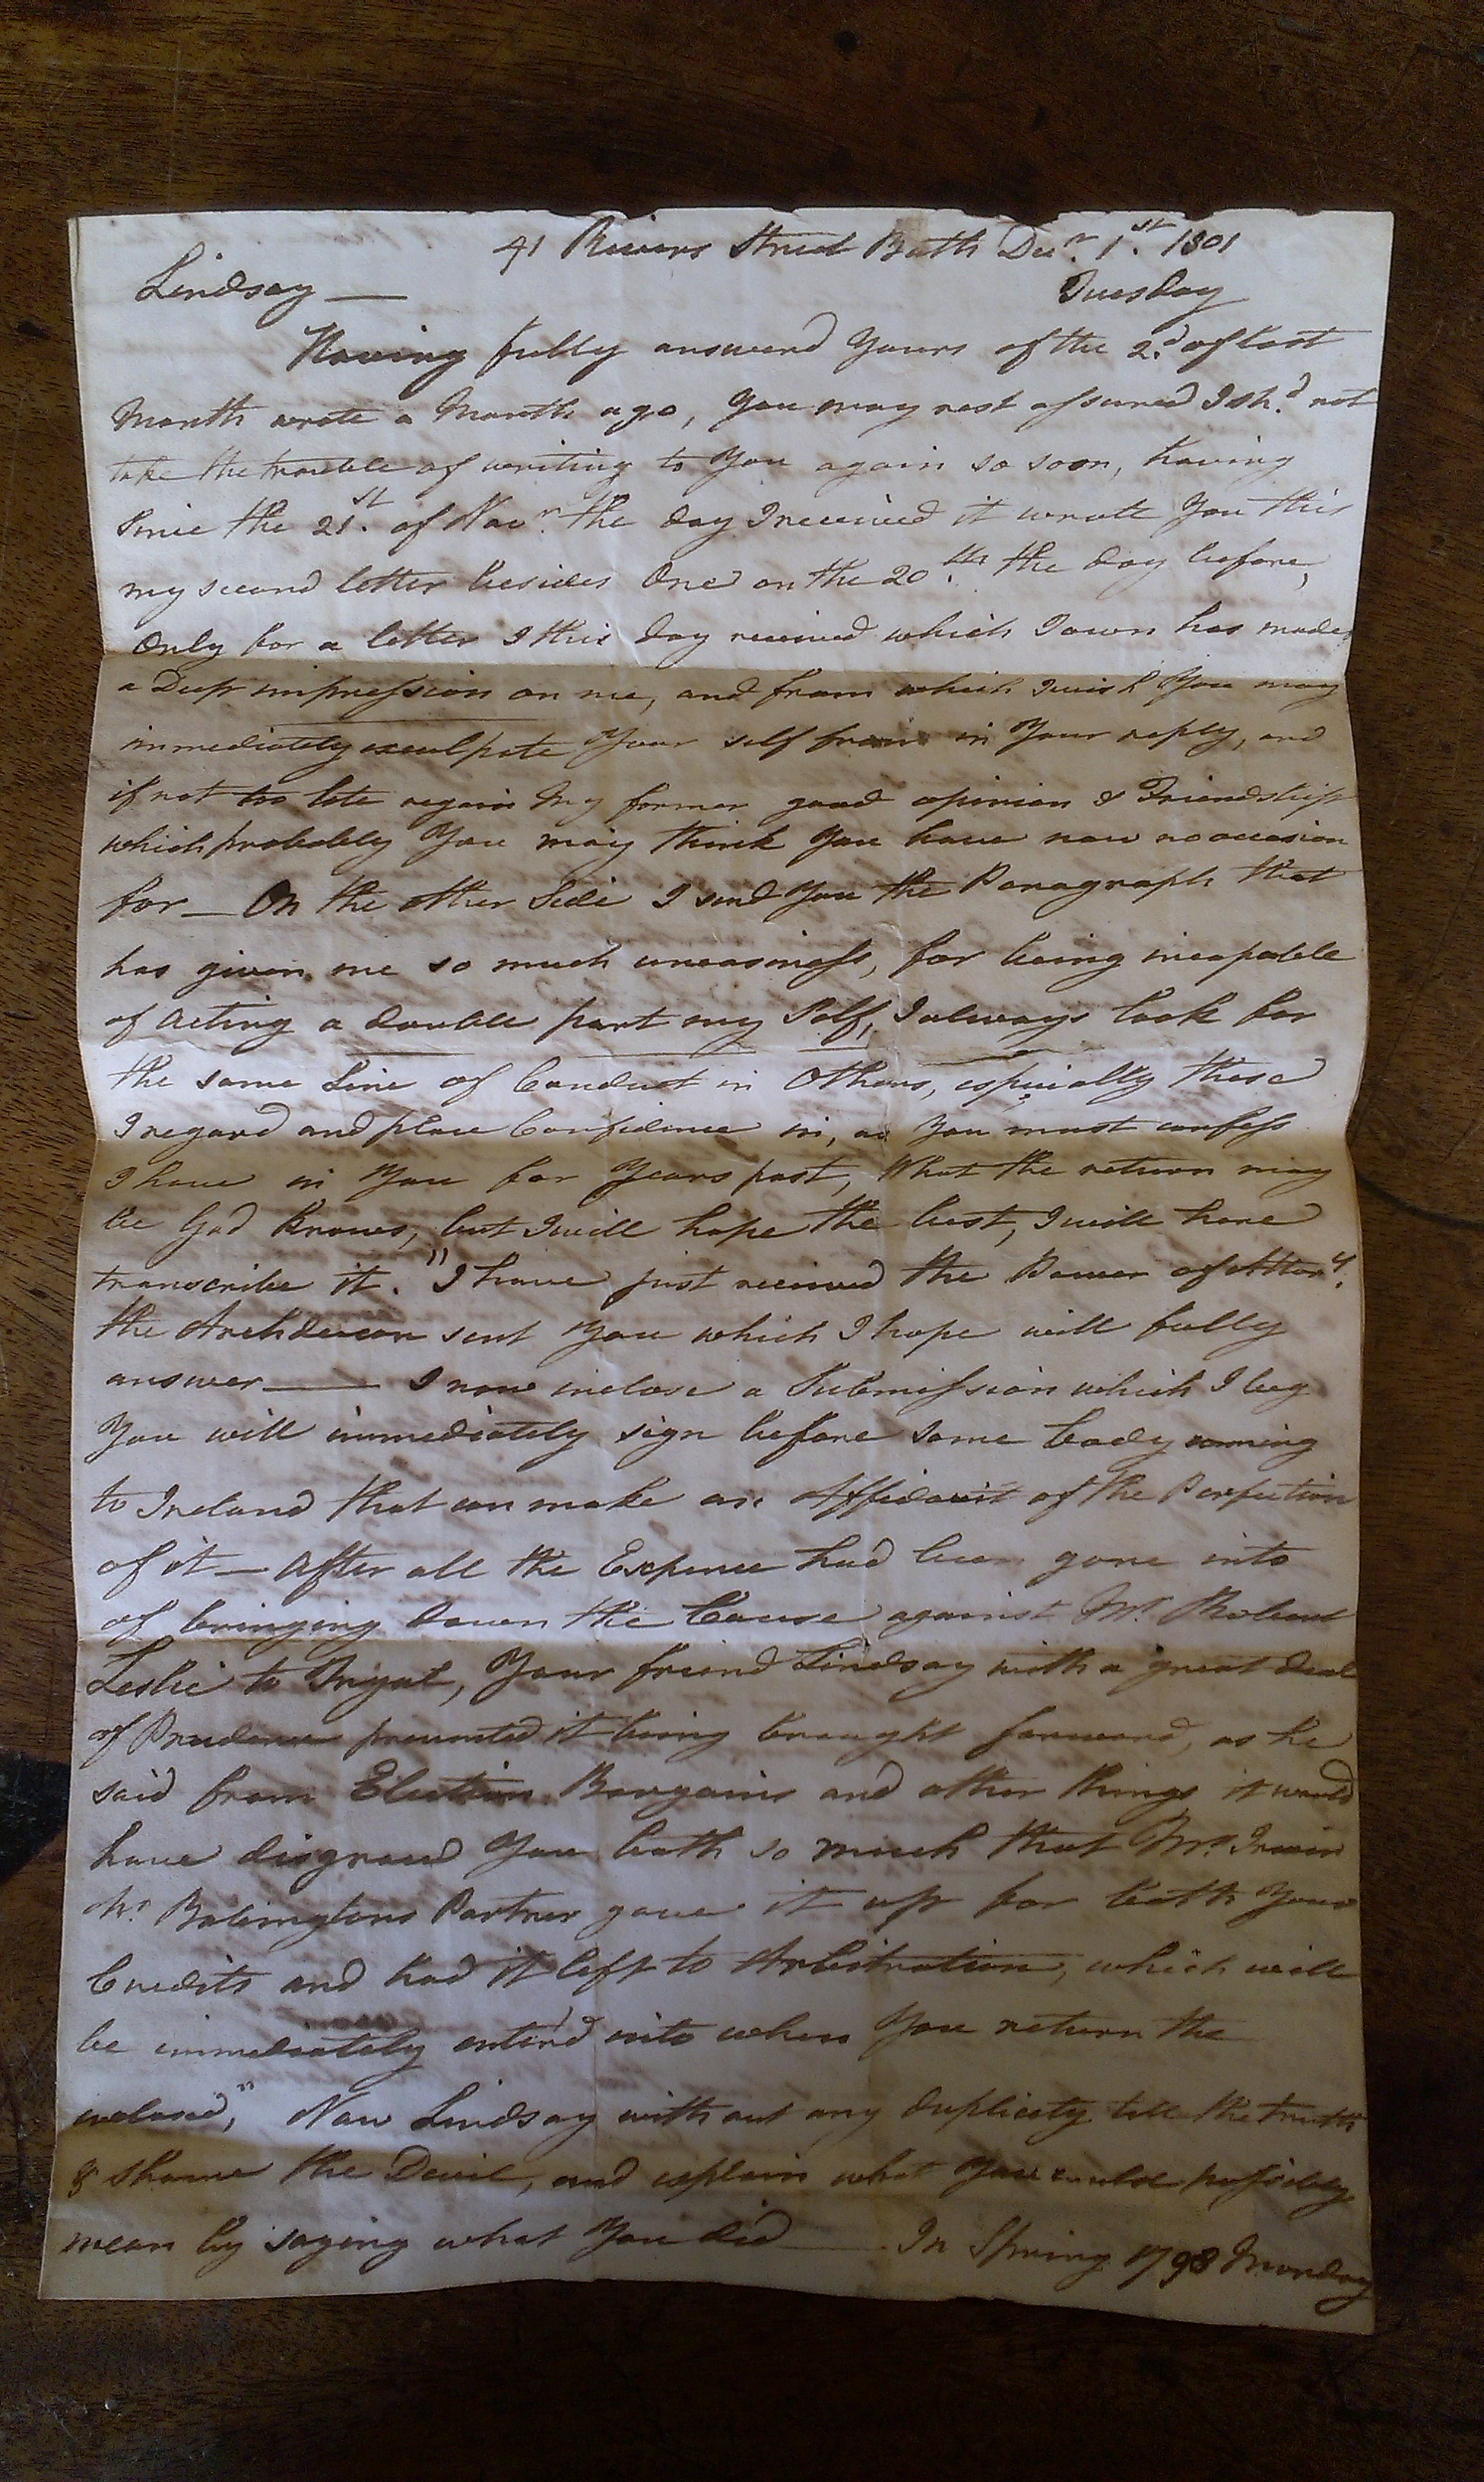 41 Rivers Street Bath Decr. 1st. 1801
Lindsay — Tuesday
Having fully answerd Yours of the 2d. of last
Month wrote a Month ago, You may rest assured I shd. not
take the trouble of writing to You again so soon, having
since the 21st. of Novr. the day I received it wrote You this
my second letter besides One on the 20th. the day before,
Only for a letter I this day received which I own has made
a Deep impression on me, and from which I wish You may
immediately exculpate Your self from in Your reply, and
if not too late regain My former good opinion & Friendship
which probably You may think You have now no occasion
for — On the other Side I send You the Paragraph that
has given me so much uneasiness, for being incapable
of acting a double part my Self, I always look for
the same Line of Conduct in Others, especially those
I regard and place Confidence in, as You must confess
I have in You for Years past, What the return may
be God knows, but I will hope the best, I will here
transcribe it. "I have just received the Power of Attory.
the Archdeacon sent You which I hope will fully
answer — I now inclose a Submission which I beg
You will immediately sign before some body coming
to Ireland that can make an Affidavit of the Perfection
of it — After all the Expence had been gone into
of bringing down the Cause against Mr. Robert
Leslie to Tryal, Your friend Lindsay with a great deal
of Prudence prevented it being brought forward, as he
said from Election Bargains and other things it would
have disgraced You both so much that Mr. Irwin
Mr. Babingtons Partner gave it up for both Your
Credits and had it left to Arbitration, which will
be immediately enterd into when You return the
inclosed," Now Lindsay without any duplicity tell the truth
& shame the Devil, and explain what You could possibly
mean by saying what You did — In Spring 1798 Monday